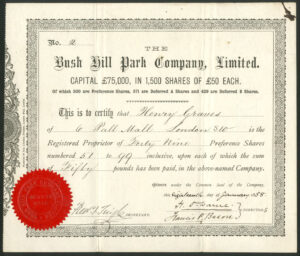 No. 2
THE
Bush Hill Park Company, Limited.
CAPITAL £75,000, IN 1,500 SHARES OF £50 EACH.
Of which 500 are Preference Shares, 571 are Deferred A Shares and 429 are Deferred B Shares.
This is to certify that Henry Graves
of 6 Pall Mall London S.W. is the
Registered Proprietor of Forty Nine Preference Shares
numbered 51 to 99 inclusive, upon each of which the sum
of Fifty pounds has been paid, in the above-named Company.
Given under the Common Seal of the Company,
the eighteenth day of January 188
SECRETARY
Francis P.